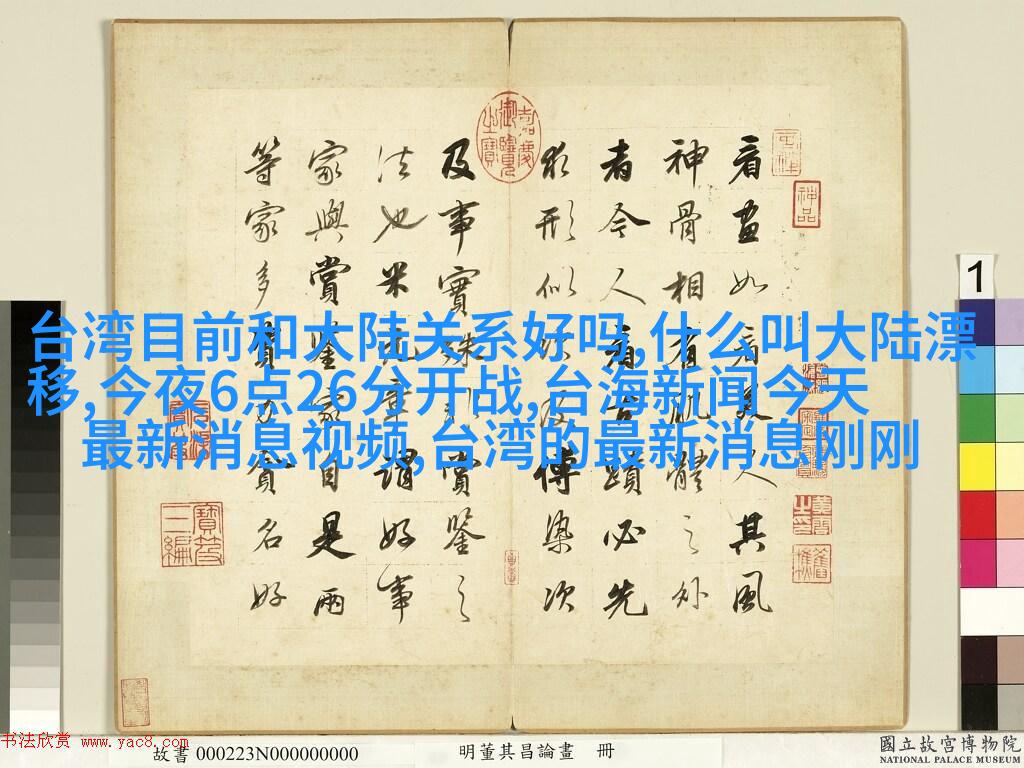 台湾目前和大陆关系好吗,什么叫大陆漂
移,今夜6点26分开战,台海新闻今天
最新消息视频,台湾的最新消息刚刚
看畫如看美人其風
神骨相有肌體之外
者今人看古蹟必先
求形似次及傅染次
及事實殊非賞鑒之
法也米元章謂好事
家與賞鑒家自是兩
等家多資力貪名好
嘉慶御覽之寶
神品
寶笈三編
1
书法欣赏 www.yac8.com
故書 000223N000000000
明董其昌論畫 冊
國立故宮博物院
NATIONAL PALACE MUSEUM